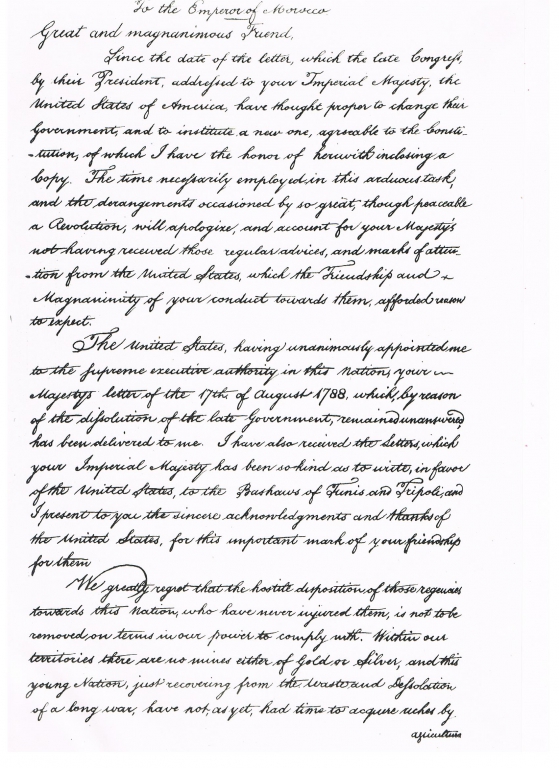 To the Emperor of Morocco
Great and magnanimous Friend,
Since the date of the letter, which the late Congress,
by their President, addressed to your Imperial Majesty, the
United States of America, have thought proper to change their
Government, and to institute a new one, agreable to the Consti-
-tution, of which I have the honor of herewith inclosing a
Copy. The time necessarily employed, in this arduous task,
and the derangements occasioned by so great, though peaceable
a Revolution, will apologize, and account for your Majesty's
not having received those regular advices, and marks of atten-
-tion from the United States, which the Friendship and
Magnanimity of your conduct towards them, afforded reason
to expect.
The United States, having unanimously appointed me
to the supreme executive authority in this Nation, your
Majesty's letter of the 17th of August 1788, which, by reason
of the dissolution of the late Government, remained unanswered,
has been delivered to me. I have also received the Letters, which
your Imperial Majesty has been so kind as to write, in favor
of the United States, to the Bashaws of Tunis and Tripoli, and
I present to you the sincere acknowledgments and thanks of
the United States, for this important mark of your friendship
for them
We greatly regret that the hostile disposition of those regencies
towards this Nation, who have never injured them, is not to be
removed, on terms in our power to comply with. Within our
territories there are no mines either of Gold or Silver, and this
young Nation, just recovering from the Waste and Dessolation
of a long war, have not, as yet, had time to acquire riches by
agriculture